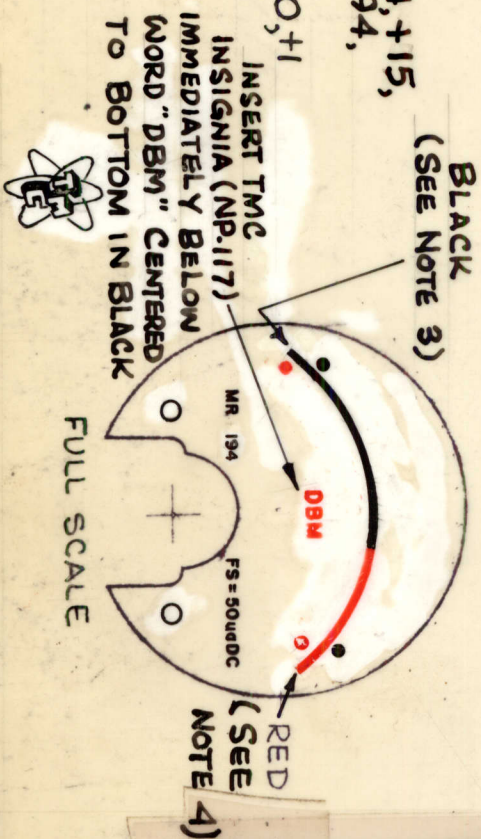 , +15,
94,
0,+1
BLACK
(SEE NOTE 3)
INSERT TMC
INSIGNIA (NP.117)
IMMEDIATELY BELOW
WORD "DBM" CENTERED
TO BOTTOM IN BLACK
TMC
DBM
MR 194
FS=50uaDC
RED
(SEE
NOTE 4)
FULL SCALE